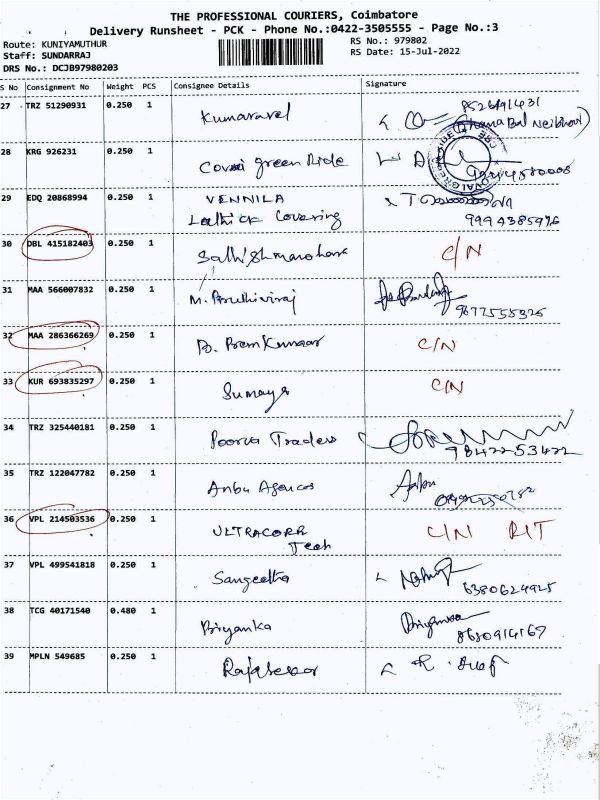 THE PROFESSIONAL COURIERS, Coimbatore
Delivery Runsheet - PCK - Phone No.:0422-3505555 - Page No.:3
Route: KUNIYAMUTHUR RS No.: 979802
Staff: SUNDARRAJ RS Date: 15-Jul-2022
DRS No.: DCJB97980203
S No Consignment No Weight PCS Consignee Details Signature
27 TRZ 51290931 0.250 1 Kumaravel
28 KRG 926231 0.250 1 Covai green Ride
29 EDQ 20868994 0.250 1 VENNILA
Covering 9994385976
30 DBL 415182403 0.250 1 C/N
31 MAA 566007832 0.250 1 M. Pruthiviraj
9677555326
32 MAA 286366269 0.250 1 B. Prem Kumaar C/N
33 KUR 693835297 0.250 1 Sumaya C/N
34 TRZ 325440181 0.250 1 Poorva Traders
9842253422
35 TRZ 122047782 0.250 1 Anbu Agencies
36 VPL 214503536 0.250 1 ULTRACORR C/N RIT
Tech
37 VPL 499541818 0.250 1 Sangeetha
6380624925
38 TCG 40171540 0.480 1 Priyanka Priyanka
8680914167
39 MPLN 549685 0.250 1 Rajasekar